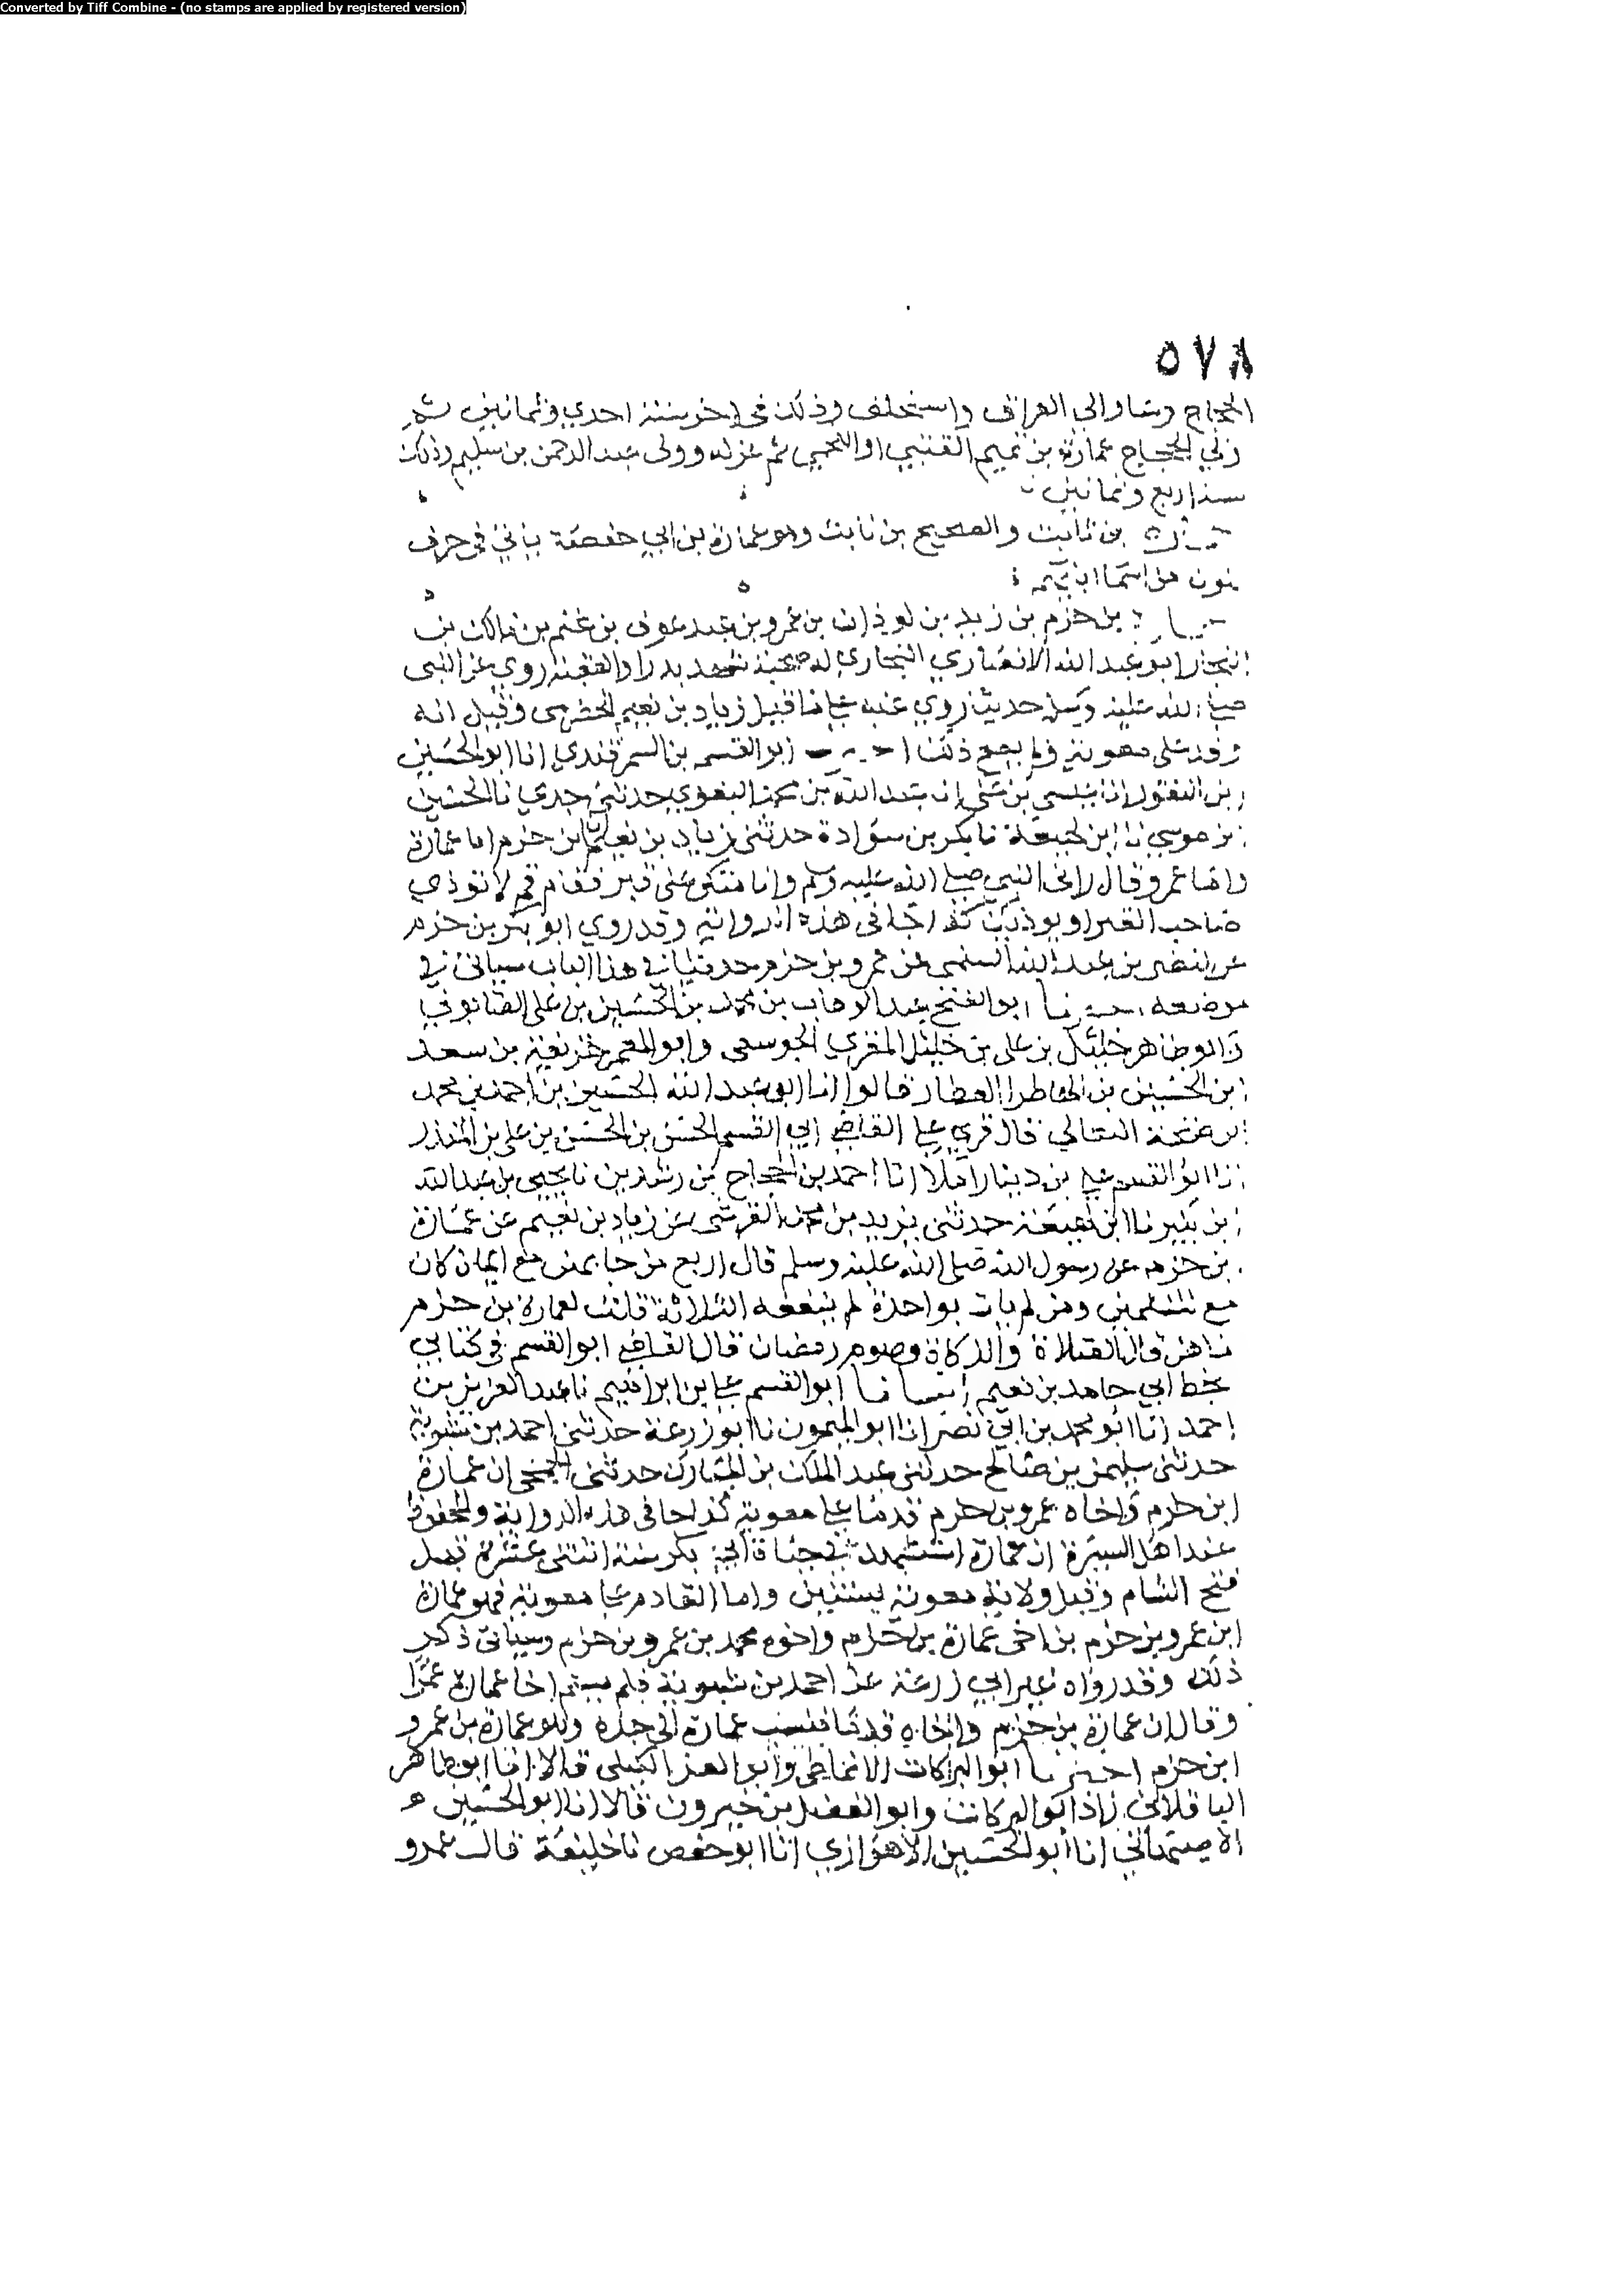 Converted by Tiff Combine - (no stamps are applied by registered version)
٥٧٨
الحجاج وسار الي العراق واستخلف وذلك في اخر سنة احدي وثمانين ثم
ولي الحجاج عمارة بن تميم القيني او اللخمي ثم عزله وولى عبد الرحمن بن سليم وذلك
سنة اربع وثمانين
بن ثابت والصحيح بن نابت وهو عمارة بن ابي حفصة ياتي في حرف
نون من اسما ابايهم
بن حزم بن زيد بن لوذان بن عمرو بن عبد عوف بن غنم بن مالك بن
النجار ابو عبد الله الانصاري النجاري له صحبة شهد بدرا والعقبة روي عن النبي
صلى الله عليه وسلم حديثا روي عنه فيما قيل زياد بن نعيم الحضرمي وقيل انه
وفد على معوية ولم يصح ذلك ابو القسم بن السمرقندي انا ابو الحسين
بن النقور انا عيسي بن علي انا عبد الله بن محمد البغوي حدثني جدي نا الحسن
بن موسي نا ابن لهيعة نا بكر بن سوادة حدثني زياد بن نعيم ان ابن حزم اما عمارة
واما عمرو قال راني النبي صلى الله عليه وسلم وانا متكئ على قبر فقال قم لا توذي
صاحب القبر او يوذيك كذا جا في هذه الرواية وقد روي ابو بكر بن حزم
عن النضر بن عبد الله السلمي عن عمرو بن حزم حديثا في هذا الباب سياتي في
موضعه اخبرنا ابو الفتح عبد الوهاب بن محمد بن الحسين بن علي الصابوني
وابو طاهر خليل بن علي بن خليل المقري الجوسقي وابو المعمر خزيفة بن سعد
ابن الحسين بن الهاطرا العطار قالوا انا ابو عبد الله الحسين بن احمد بن محمد
بن طلحة النعالي قال قري على القاضي ابي القسم الحسن بن الحسن بن علي بن المنذر
نا ابو القسم علي بن دينار املا انا احمد بن الحجاج بن رشدين نا يحيى بن عبد الله
بن بكير نا ابن لهيعة حدثني يزيد بن محمد القرشي عن زياد بن نعيم عن عمارة
بن حزم عن رسول الله صلى الله عليه وسلم قال اربع من جا بهن مع ايمان كان
مع المسلمين ومن لم يات بواحدة لم ينفعه الثلاثة قلت لعمارة بن حزم
ما هن قال الصلاة والزكاة وصوم رمضان قال القاضي ابو القسم في كتابي
بخط ابي حامد بن نعيم انبانا ابو القسم علي بن ابراهيم نا عبد العزيز بن
احمد انا ابو محمد بن ابي نصر انا ابو الميمون نا ابو زرعة حدثني احمد بن شبوية
حدثني سليمن بن صالح حدثني عبد الملك بن المبارك حدثني ان عمارة
ابن حزم واخاه عمرو بن حزم قدما على معوية كذا جا في هذه الرواية والمحفوظ
عند اهل السيرة ان عمارة استشهد في ابي بكر سنة اثنتي عشرة قبل
فتح الشام وقبل ولاية معوية بسنين واما القادم على معوية فهو عمارة
ابن عمرو بن حزم بن اخي عمارة بن حزم واخوه محمد بن عمرو بن حزم وسياتي ذكر
ذلك وقد رواه غير ابي زرعة عن احمد بن شبوية فلم يسم اخا عمارة عمرا
وقال ان عمارة بن حزم واخاه قدما فنسب عمارة الي جده وهو عمارة بن عمرو
ابن حزم اخبرنا ابو البركات الانماطي وابو العز الكيلي قالا انا ابو طاهر
الباقلاني زاد ابو البركات وابو الفضل بن خيرون قالا انا ابو الحسين
الاصبهاني انا ابو الحسين الاهوازي انا ابو حفص نا خليفة قال عمرو